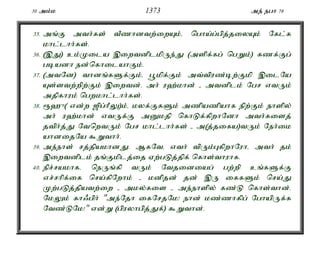 30 அம்ம 1373 அந் நபா 78
35. அங்கு அவர்கள் வீணானவற்றையும், பொய்ப்பித்தலையும் கேட்க
மாட்டார்கள்.
36. (இது) உம்முடைய இறைவனிடமிருந்து (அளிக்கப் பெறும்) கணக்குப்
படியான நன்கொடையாகும்.
37. (அவனே) வானங்களுக்கும், பூமிக்கும் அவ்விரண்டிற்குமி இடையே
யுள்ளவற்றிற்கும் இறைவன், அர் ரஹ்மான் - அவனிடம் பேச எவரும்
அதிகாரம் பெறமாட்டார்கள்.
38. ரூஹு( என்ற ஜிப்ரீலு)ம், மலக்குகளும் அணியணியாக நிற்கும் நாளில்
அர் ரஹ்மான் எவருக்கு அனுமதி கொடுக்கிறானோ அவர்களைத்
தவிர்த்து வேறெவரும் பேச மாட்டார்கள் - அ(த்தகைய)வரும் நேர்மை
யானதையே கூறுவார்.
39. அந்நாள் சத்தியமானது. ஆகவே, எவர் விரும்புகிறாரோ, அவர் தம்
இறைவனிடம் தங்குமிடத்தை ஏற்படுத்திக் கொள்வாராக.
40. நிச்சயமாக, நெருங்கி வரும் வேதனையைப் பற்றி உங்களுக்கு
எச்சரிக்கை செய்கிறோம் - மனிதன் தன் இரு கைகளும் செய்து
முற்படுத்தியவற்றை - அமல்களை - அந்நாளில் கண்டு கொள்வான்.
மேலும் காஃபிர் "அந்தோ கைசேதமே! நான் மண்ணாகிப் போயிருக்க
வேண்டுமே!" என்று (பிரலாபித்துக்) கூறுவான்.